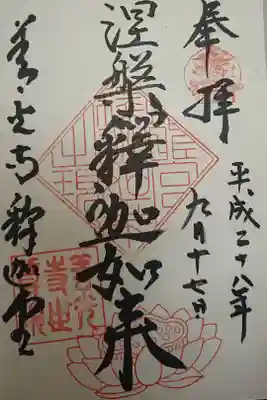 奉拝
平成二十八年
九月十七日
涅槃釋迦如来
善光寺釈迦堂